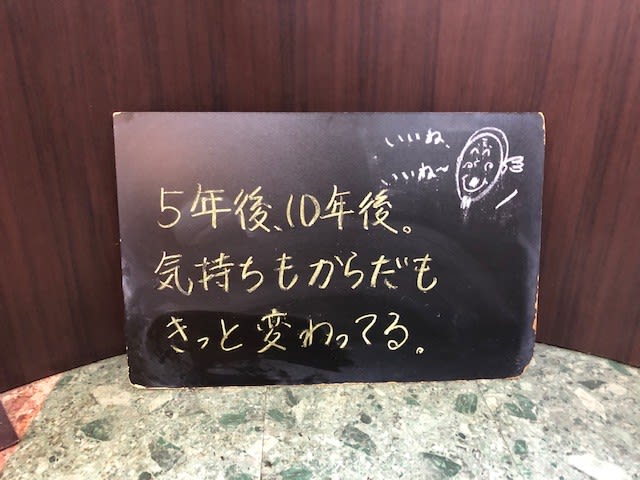 いいね、
いいね〜
5年後、10年後。
気持ちもからだも
きっと変わってる。